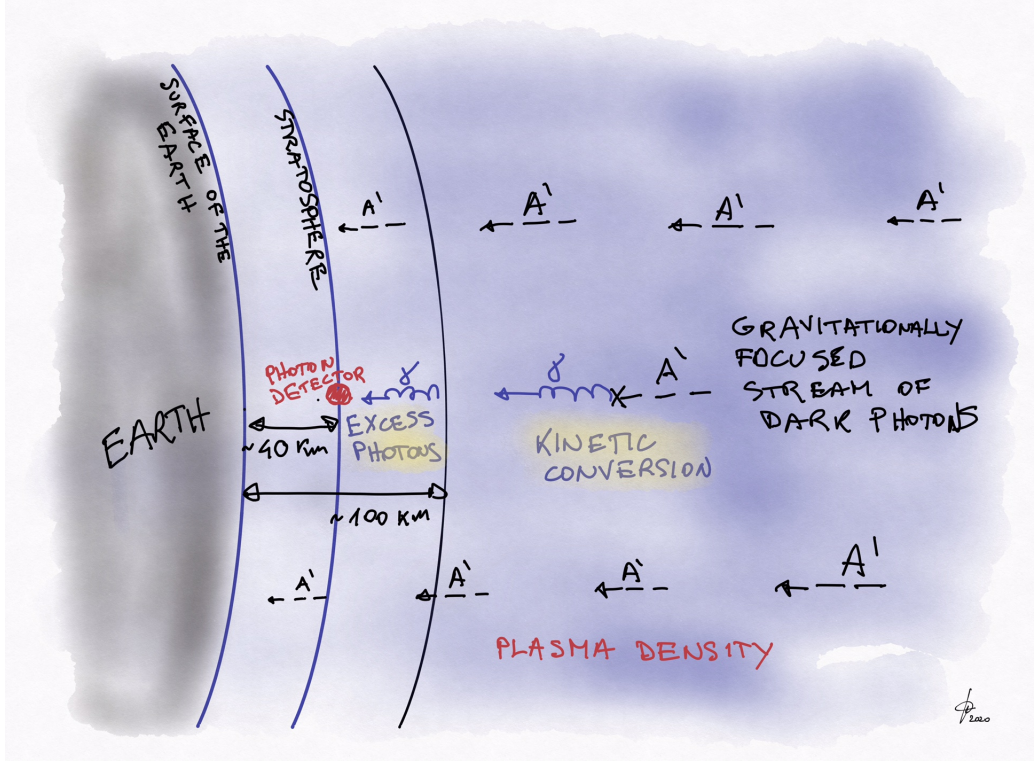 SURFACE OF THE
EARTH
STRATOSPHERE
A'
A'
A'
A'
GRAVITATIONALLY
FOCUSED
STREAM OF
DARK PHOTONS
PHOTON
DETECTOR
γ
γ
A'
EXCESS
PHOTONS
KINETIC
CONVERSION
EARTH
~40 Km
~100 KM
A'
A'
A'
A'
PLASMA DENSITY
2020